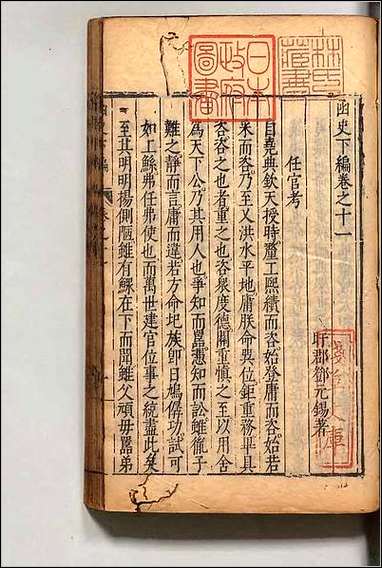 函史下編卷之十一
盱郡鄧元錫著
任官考
自堯典欽天授時釐工熙績而咨始登庸而咨始若
釆而咨乃至乂洪水平地庸朕命巽位鉅重務畢具
咨咨之也者重之也咨衆度德關重愼之至以用舍
為天下公乃其用人也爭知而嚚慿知而訟雖徹子
難之靜而言庸而違若方命圮族卽日鳩僝功試可
如工鯀弗任弗使也而萬世建官位事之統盡此矣
至其明明揚側陋雖有鰥在下而聞雖父頑母嚚弟
日本
政府
圖書
林氏
藏書
文庫